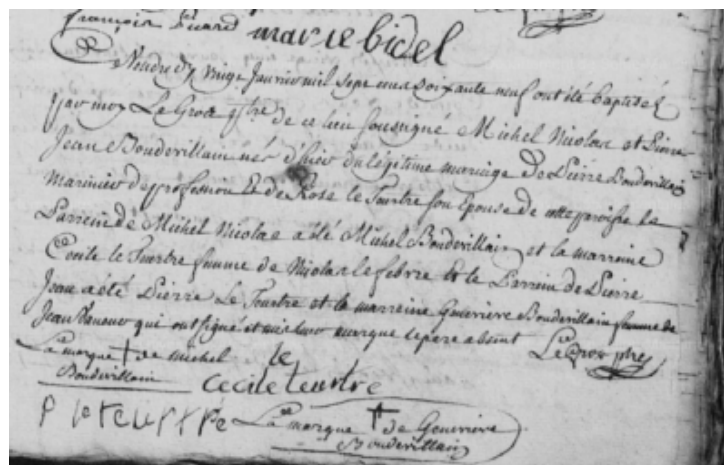 françois Picard marie bidel
Ce Vendredy vingt Janvier mil sept cens soixante neuf ont été baptisés
par moy Le Gros ptre de ce lieu soussigné Michel Nicolas et Pierre
Jean Boudevillain nés d'hier du légitime mariage de Pierre Boudevillain
Marinier de profession Et de Rose le Teurtre son Epouse de cette paroisse le
Parrein de Michel Nicolas a été Michel Boudevillain et la marreine
Cecile le Teurtre femme de Nicolas lefebvre Et le Parrein de Pierre
Jean a été Pierre Le Teurtre et la marreine Genevieve Boudevillain femme de
Jean qui ont signé et mis leur marque le pere absent Le Gros ptre
La marque † de Michel le
Boudevillain Cecile teurtre
P le teurtre La marque † de Genevieve
Boudevillain